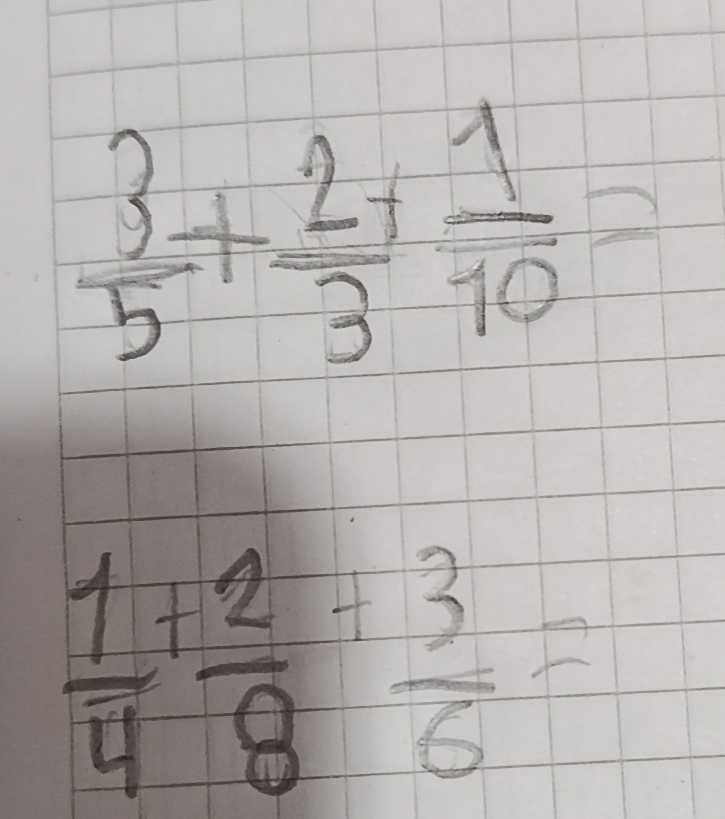 3/5 + 2/3 + 1/10 =
1/4 + 2/8 + 3/6 =